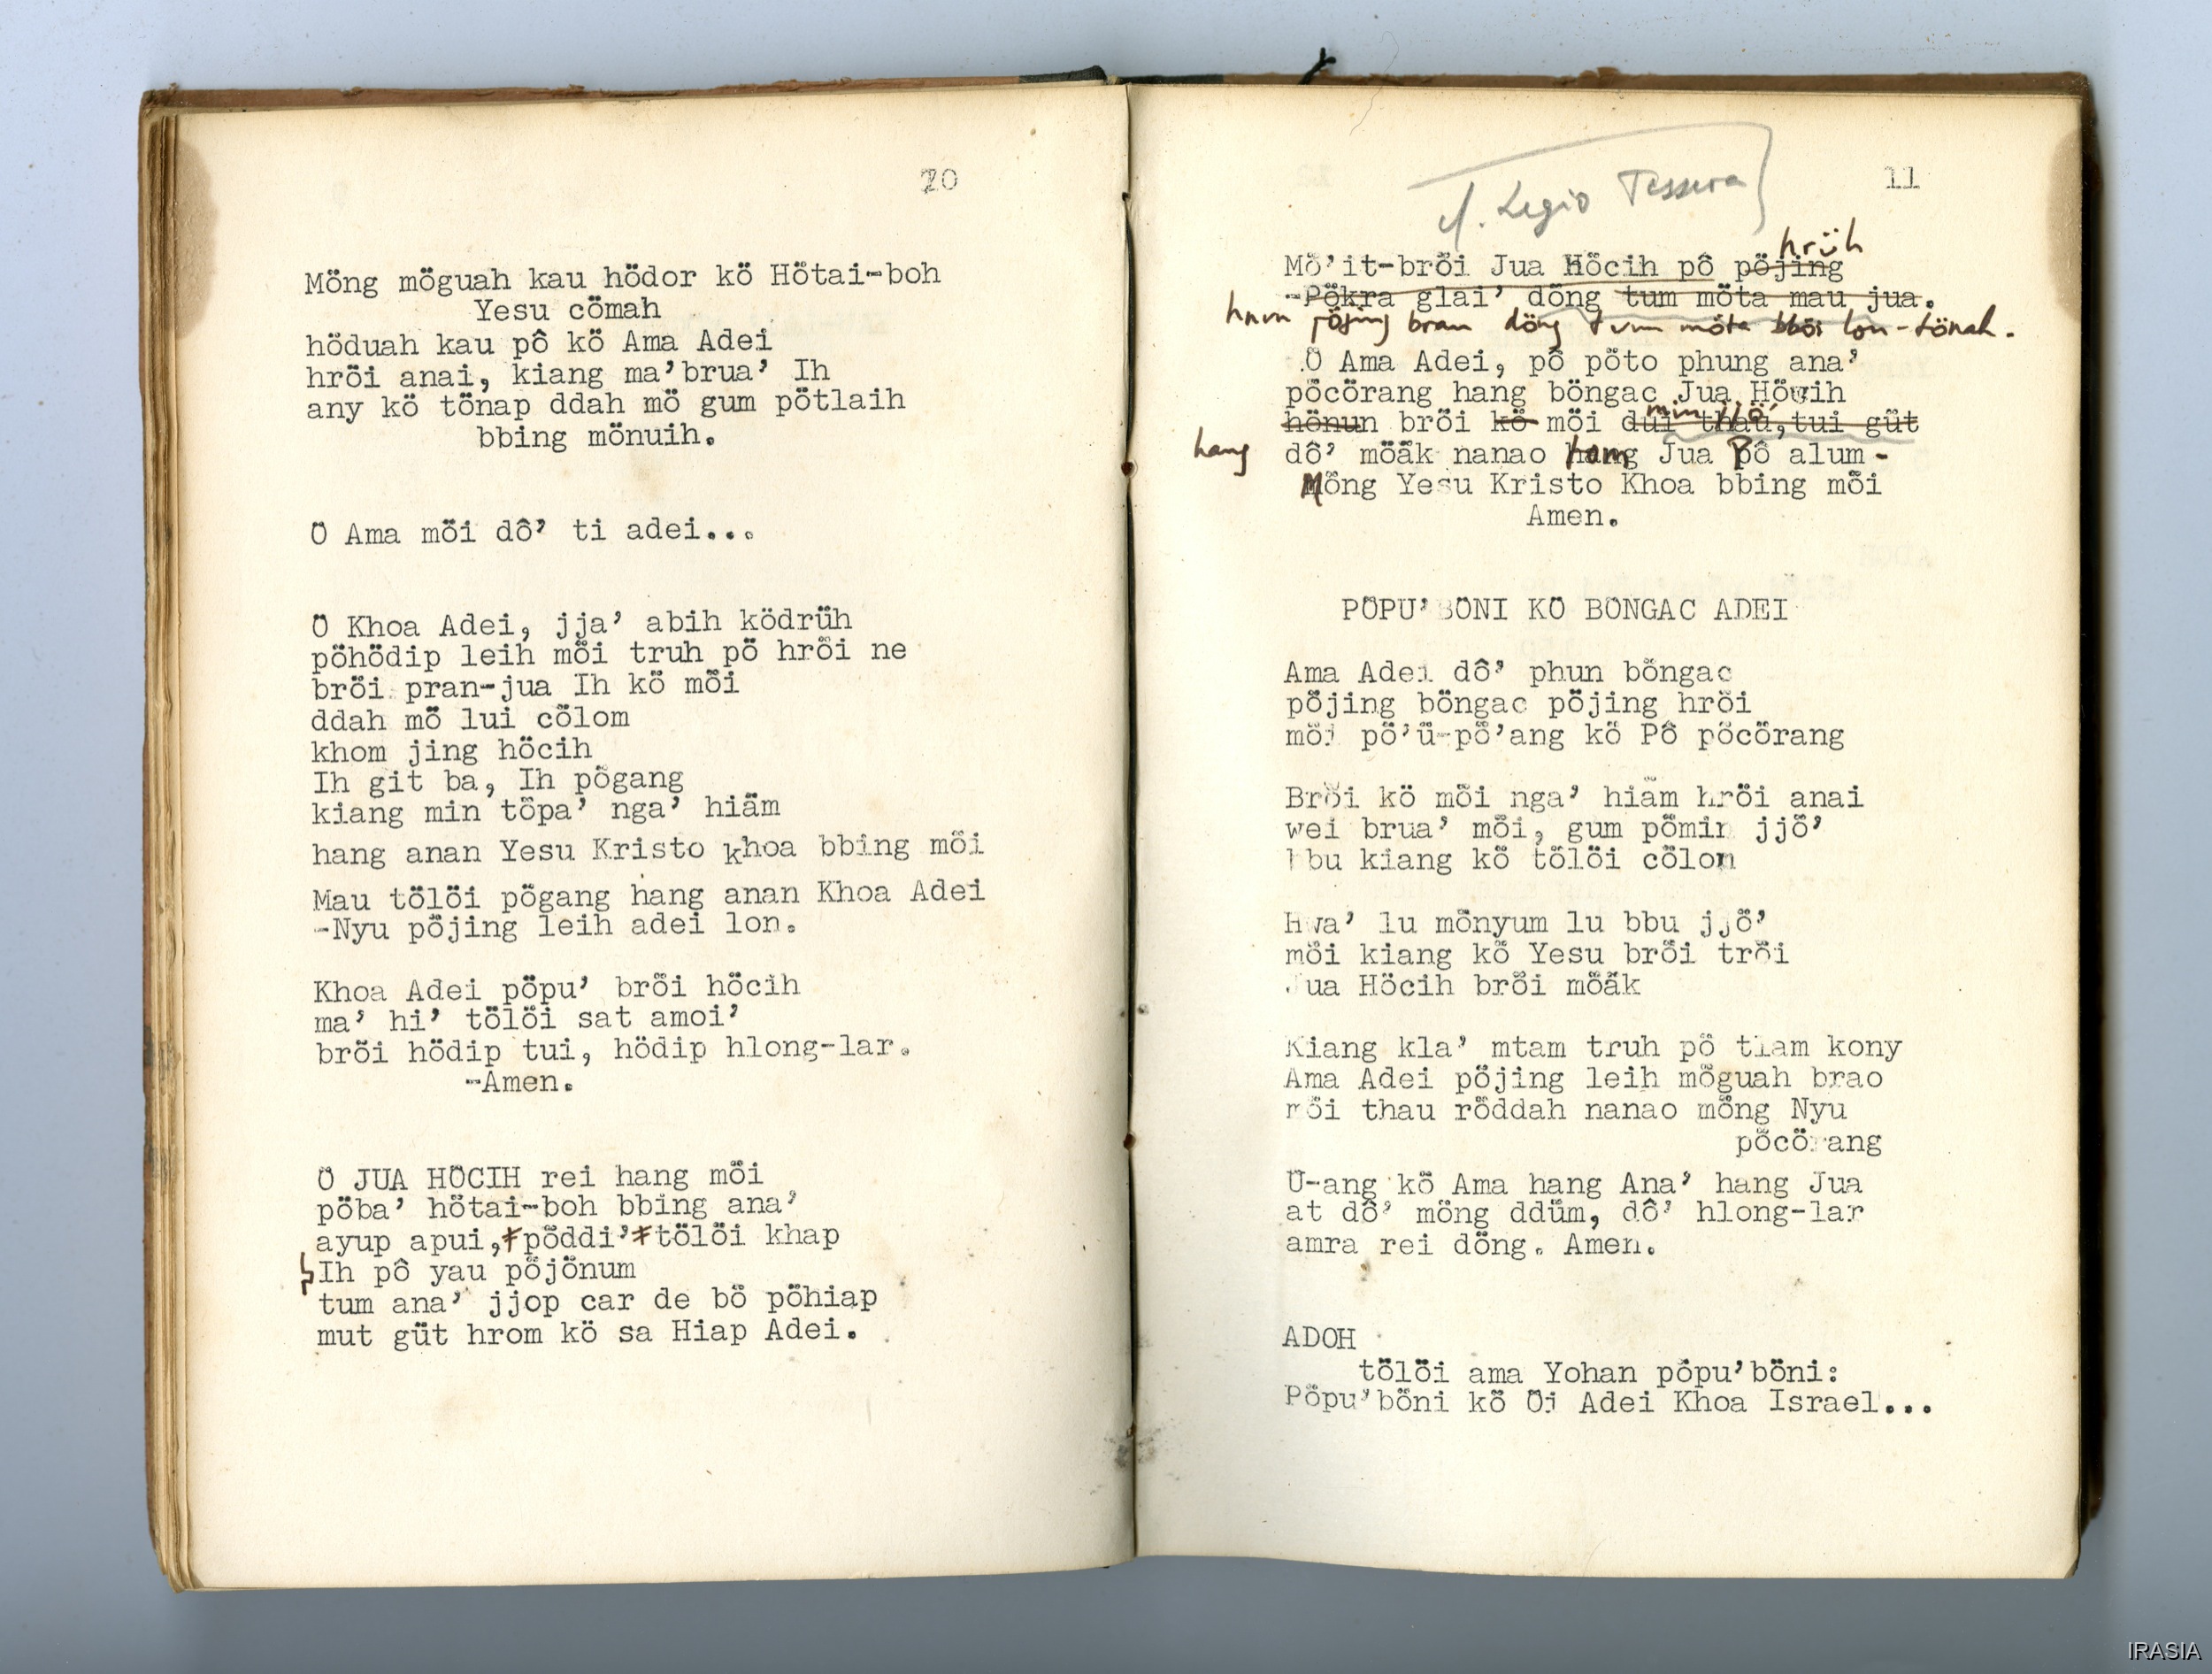 10
Möng möguah kau hödor kö Hötai-boh
Yesu cömah
höduah kau pô kö Ama Adei
hröi anai, kiang ma'brua' Ih
any kö tönap ddah mö gum pötlaih
bbing mönuih.
Ö Ama möi dô' ti adei...
Ö Khoa Adei, jja' abih ködrüh
pöhödip leih möi truh pö hröi ne
bröi pran-jua Ih kö möi
ddah mö lui cölom
khom jing höcih
Ih git ba, Ih pögang
kiang min töpa' nga' hiäm
hang anan Yesu Kristo khoa bbing möi
Mau tölöi pögang hang anan Khoa Adei
-Nyu pöjing leih adei lon.
Khoa Adei pöpu' bröi höcih
ma' hi' tölöi sat amoi'
bröi hödip tui, hödip hlong-lar.
-Amen.
Ö JUA HÖCIH rei hang möi
pöba' hötai-boh bbing ana'
ayup apui, pöddi' tölöi khap
Ih pô yau pöjönum
tum ana' jjop car de bö pöhiap
mut güt hrom kö sa Hiap Adei.
11
Legio Tessera
hrüh
Mö'it-bröi Jua Höcih pô pöjing
-Pökra glai' döng tum möta mau jua.
hnun pöjing bran döng tum möta bböi lon-tönah.
Ö Ama Adei, pô pöto phung ana'
pöcörang hang böngac Jua Höcih
min jjö'
hönun bröi kö möi dui thaü, tui güt
hang dô' möäk nanao hang Jua Pô alum-
Möng Yesu Kristo Khoa bbing möi
Amen.
PÖPU'BÖNI KÖ BÖNGAC ADEI
Ama Adei dô' phun böngac
pöjing böngac pöjing hröi
möi pö'ü-pö'ang kö Pô pöcörang
Bröi kö möi nga' hiäm hröi anai
wei brua' möi, gum pömin jjö'
bbu kiang kö tölöi cölom
Hwa' lu mönyum lu bbu jjö'
möi kiang kö Yesu bröi tröi
Jua Höcih bröi möäk
Kiang kla' mtam truh pö tlam kony
Ama Adei pöjing leih möguah brao
möi thau röddah nanao möng Nyu
pöcörang
Ü-ang kö Ama hang Ana' hang Jua
at dô' möng ddüm, dô' hlong-lar
amra rei döng. Amen.
ADOH
tölöi ama Yohan pöpu'böni:
Pöpu'böni kö Öi Adei Khoa Israel...
IRASIA